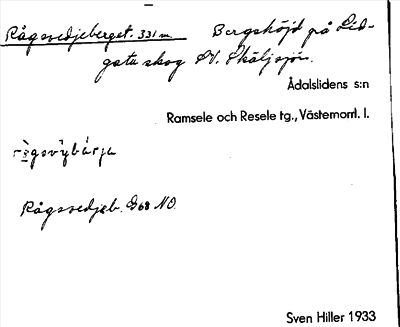 Rågsvedjeberget. 331 m. Bergshöjd på Lid-
gatu skog SV. Skäljsjön.
Ådalslidens s:n
Ramsele och Resele tg., Västernorrl. l.
Rågsvedjeb. G68 NO.
Sven Hiller 1933